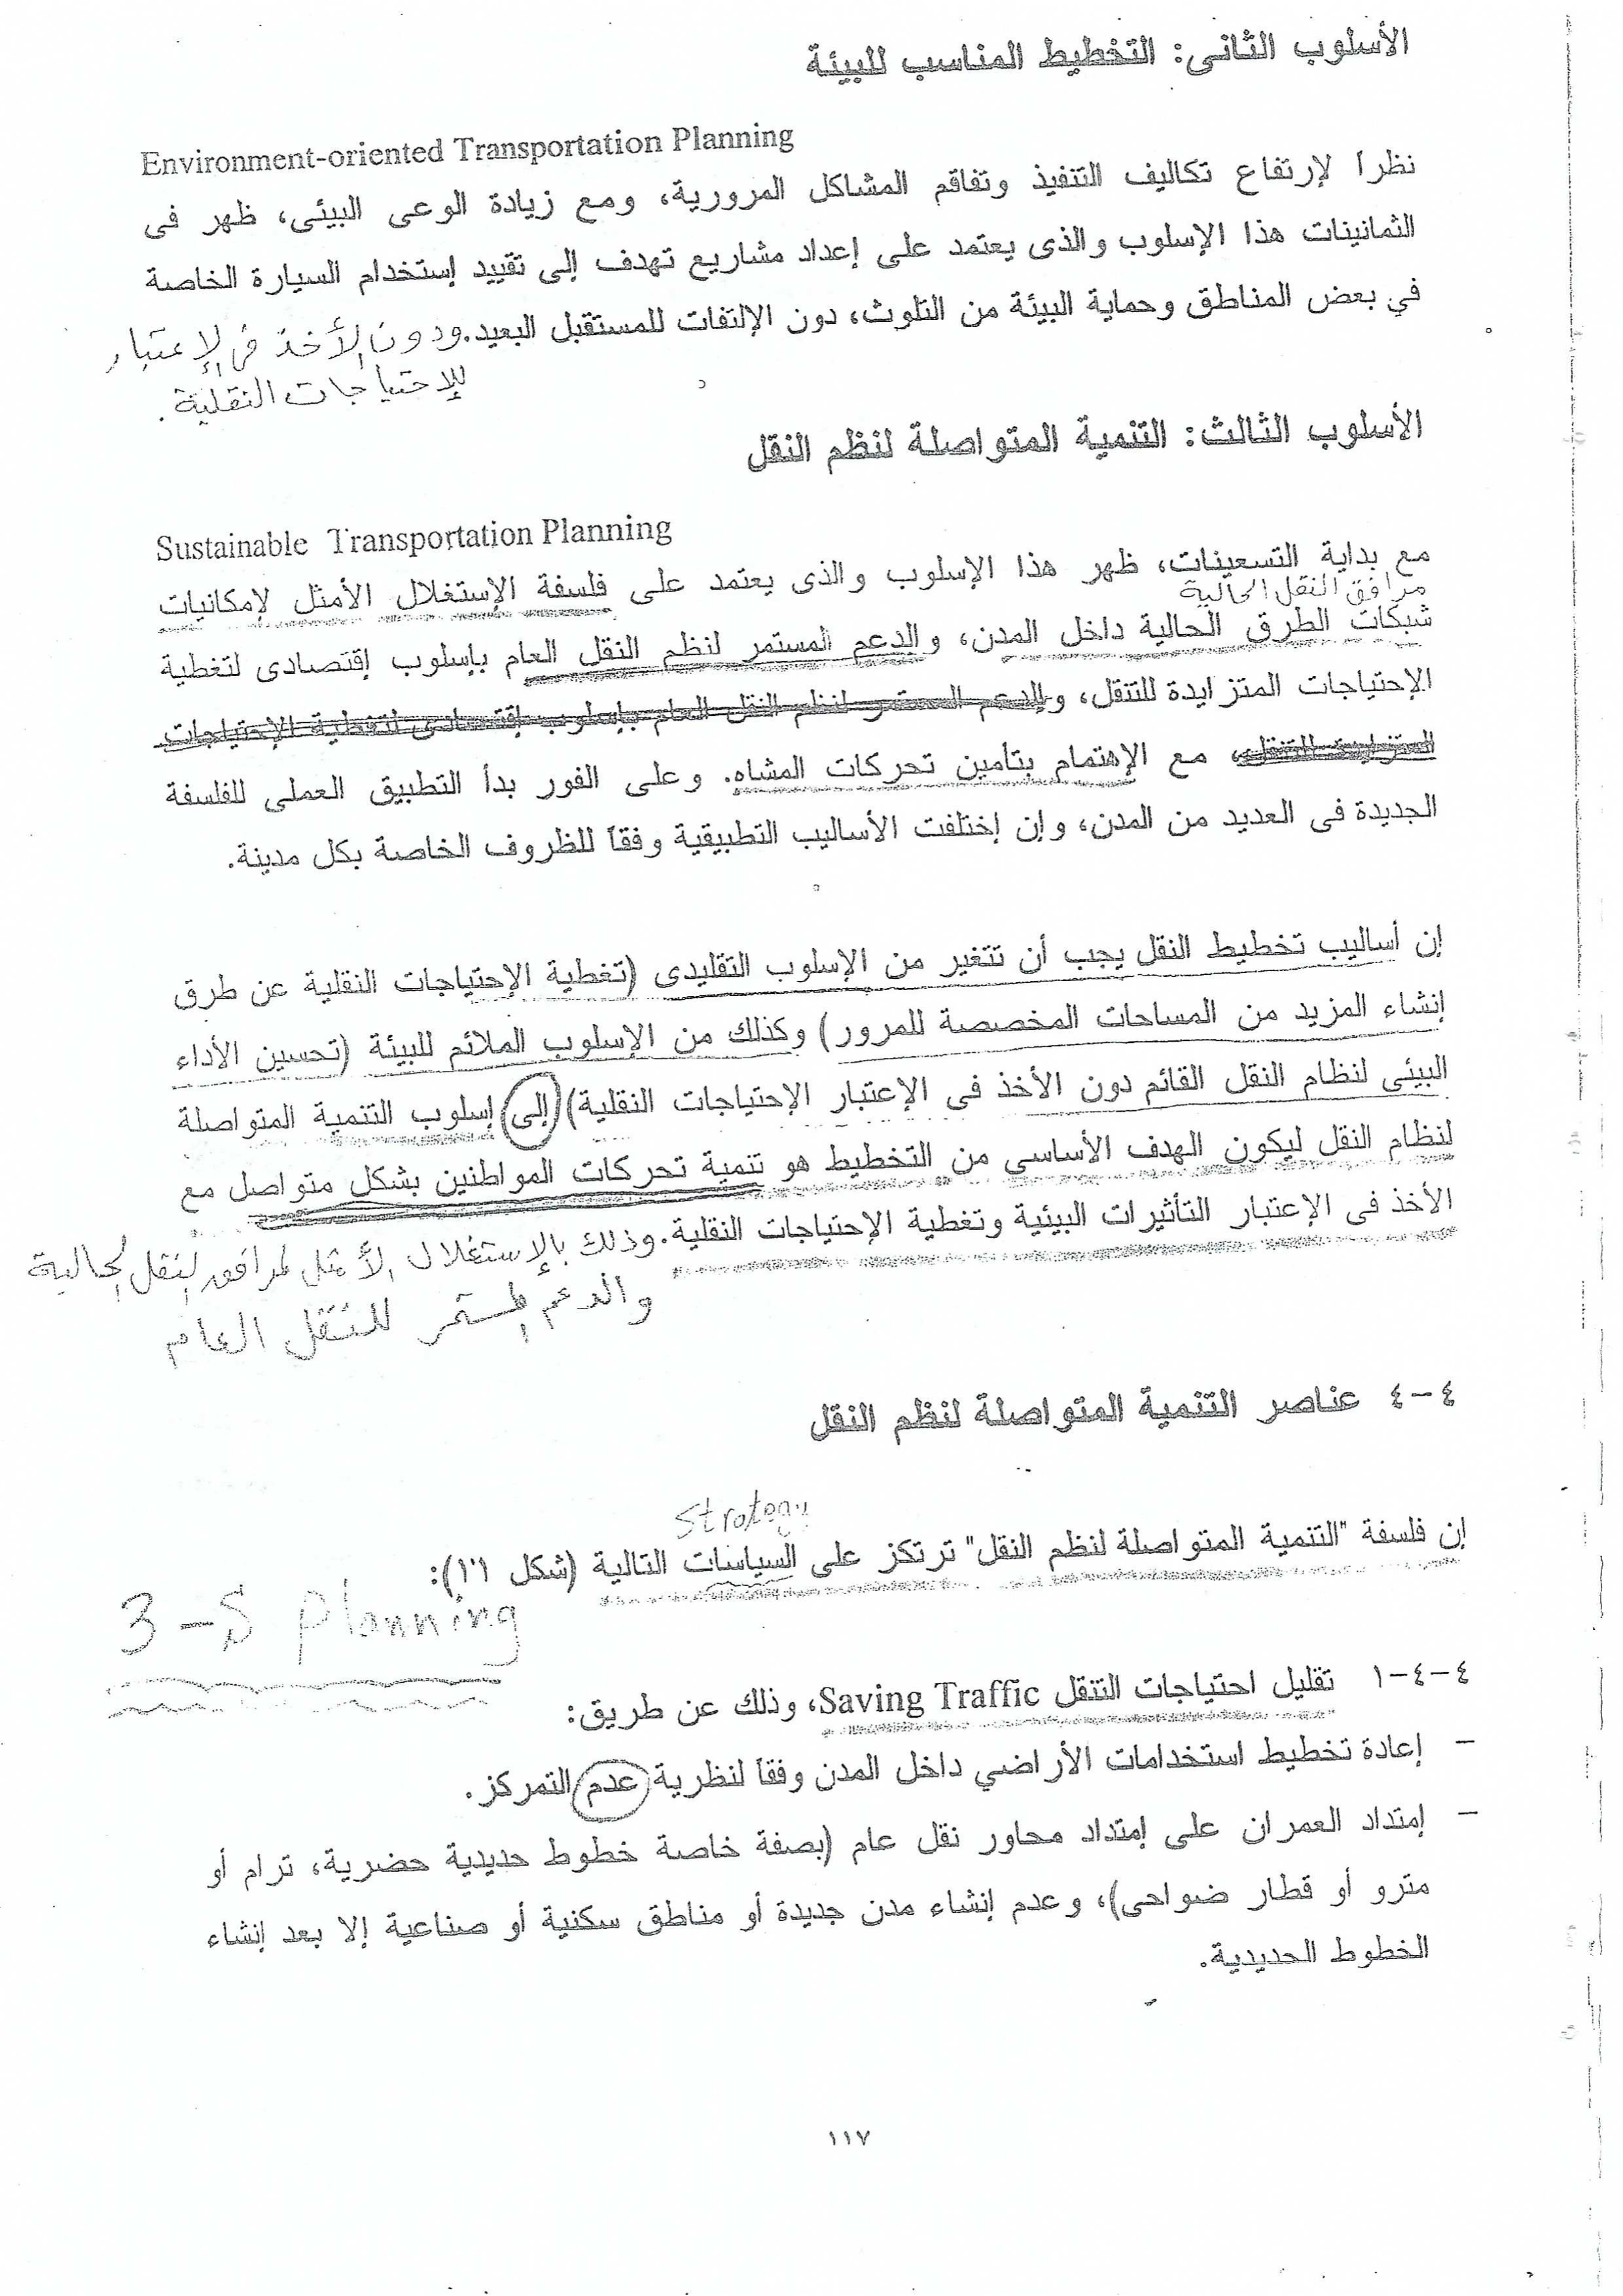 الأسلوب الثانى: التخطيط المناسب للبيئة
Environment-oriented Transportation Planning
نظراً لإرتفاع تكاليف التنفيذ وتفاقم المشاكل المرورية، ومع زيادة الوعى البيئى، ظهر فى
الثمانينات هذا الإسلوب والذى يعتمد على إعداد مشاريع تهدف إلى تقييد إستخدام السيارة الخاصة
في بعض المناطق وحماية البيئة من التلوث، دون الإلتفات للمستقبل البعيد. ودون الأخذ فى الإعتبار
للإحتياجات النقلية.
الأسلوب الثالث: التنمية المتواصلة لنظم النقل
Sustainable Transportation Planning
مع بداية التسعينات، ظهر هذا الإسلوب والذى يعتمد على فلسفة الإستغلال الأمثل لإمكانيات
مرافق النقل الحالية
شبكات الطرق الحالية داخل المدن، والدعم المستمر لنظم النقل العام بإسلوب إقتصادى لتغطية
الإحتياجات المتزايدة للتنقل، والدعم المستمر لنظم النقل العام بإسلوب إقتصادى لتغطية الإحتياجات
المتزايدة للتنقل، مع الإهتمام بتأمين تحركات المشاه. وعلى الفور بدأ التطبيق العملى للفلسفة
الجديدة فى العديد من المدن، وإن إختلفت الأساليب التطبيقية وفقاً للظروف الخاصة بكل مدينة.
إن أساليب تخطيط النقل يجب أن تتغير من الإسلوب التقليدى (تغطية الإحتياجات النقلية عن طرق
إنشاء المزيد من المساحات المخصصة للمرور) وكذلك من الإسلوب الملائم للبيئة (تحسين الأداء
البيئى لنظام النقل القائم دون الأخذ فى الإعتبار الإحتياجات النقلية) إلى إسلوب التنمية المتواصلة
لنظام النقل ليكون الهدف الأساسي من التخطيط هو تنمية تحركات المواطنين بشكل متواصل مع
الأخذ فى الإعتبار التأثيرات البيئية وتغطية الإحتياجات النقلية. وذلك بالإستغلال الأمثل لمرافق النقل الحالية
والدعم المستمر للنقل العام
٤-٤ عناصر التنمية المتواصلة لنظم النقل
Strategy
إن فلسفة "التنمية المتواصلة لنظم النقل" ترتكز على السياسات التالية (شكل ١٦):
3-S Planning
٤-٤-١ تقليل احتياجات التنقل Saving Traffic، وذلك عن طريق:
- إعادة تخطيط استخدامات الأراضي داخل المدن وفقاً لنظرية عدم التمركز.
- إمتداد العمران على إمتداد محاور نقل عام (بصفة خاصة خطوط حديدية حضرية، ترام أو
مترو أو قطار ضواحى)، وعدم إنشاء مدن جديدة أو مناطق سكنية أو صناعية إلا بعد إنشاء
الخطوط الحديدية.
١١٧